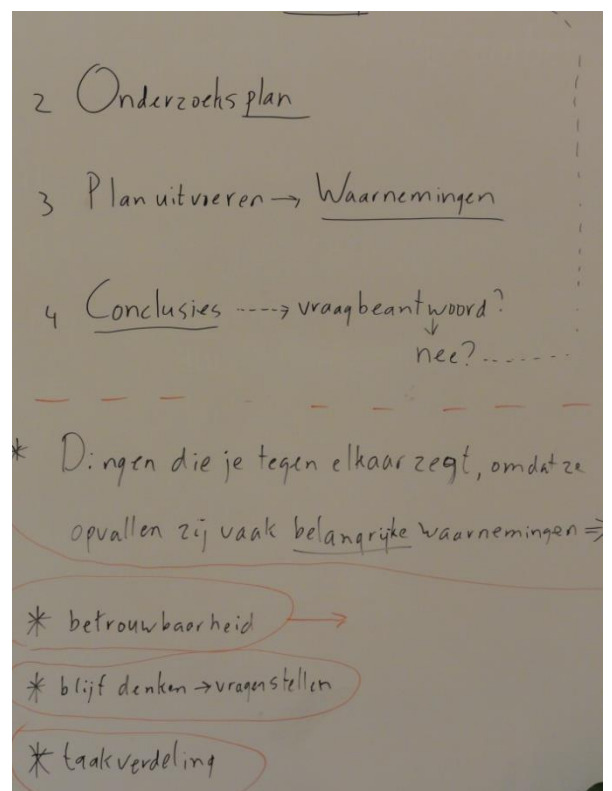 2 Onderzoeksplan
3 Plan uitvoeren → Waarnemingen
4 Conclusies ----> vraag beantwoord?
↓
nee? .......
* Dingen die je tegen elkaar zegt, omdat ze
opvallen zij vaak belangrijke waarnemingen ⇒
* betrouwbaarheid →
* blijf denken → vragen stellen
* taakverdeling